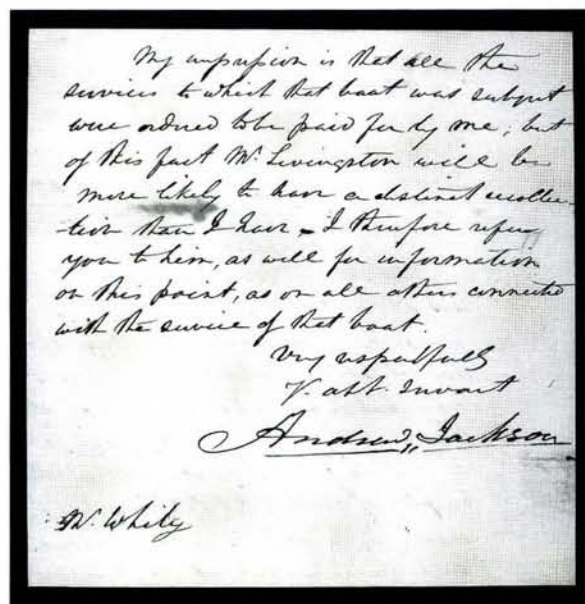 My impression is that all the
services to which that boat was subject
were ordered to be paid for by me; but
of this fact Mr. Livingston will be
more likely to have a distinct recollec-
-tion than I have - I therefore refer
you to him, as well for information
on this point, as on all others connected
with the service of that boat.
Very respectfully
Y. obt. Servant
Andrew Jackson
Mr. White